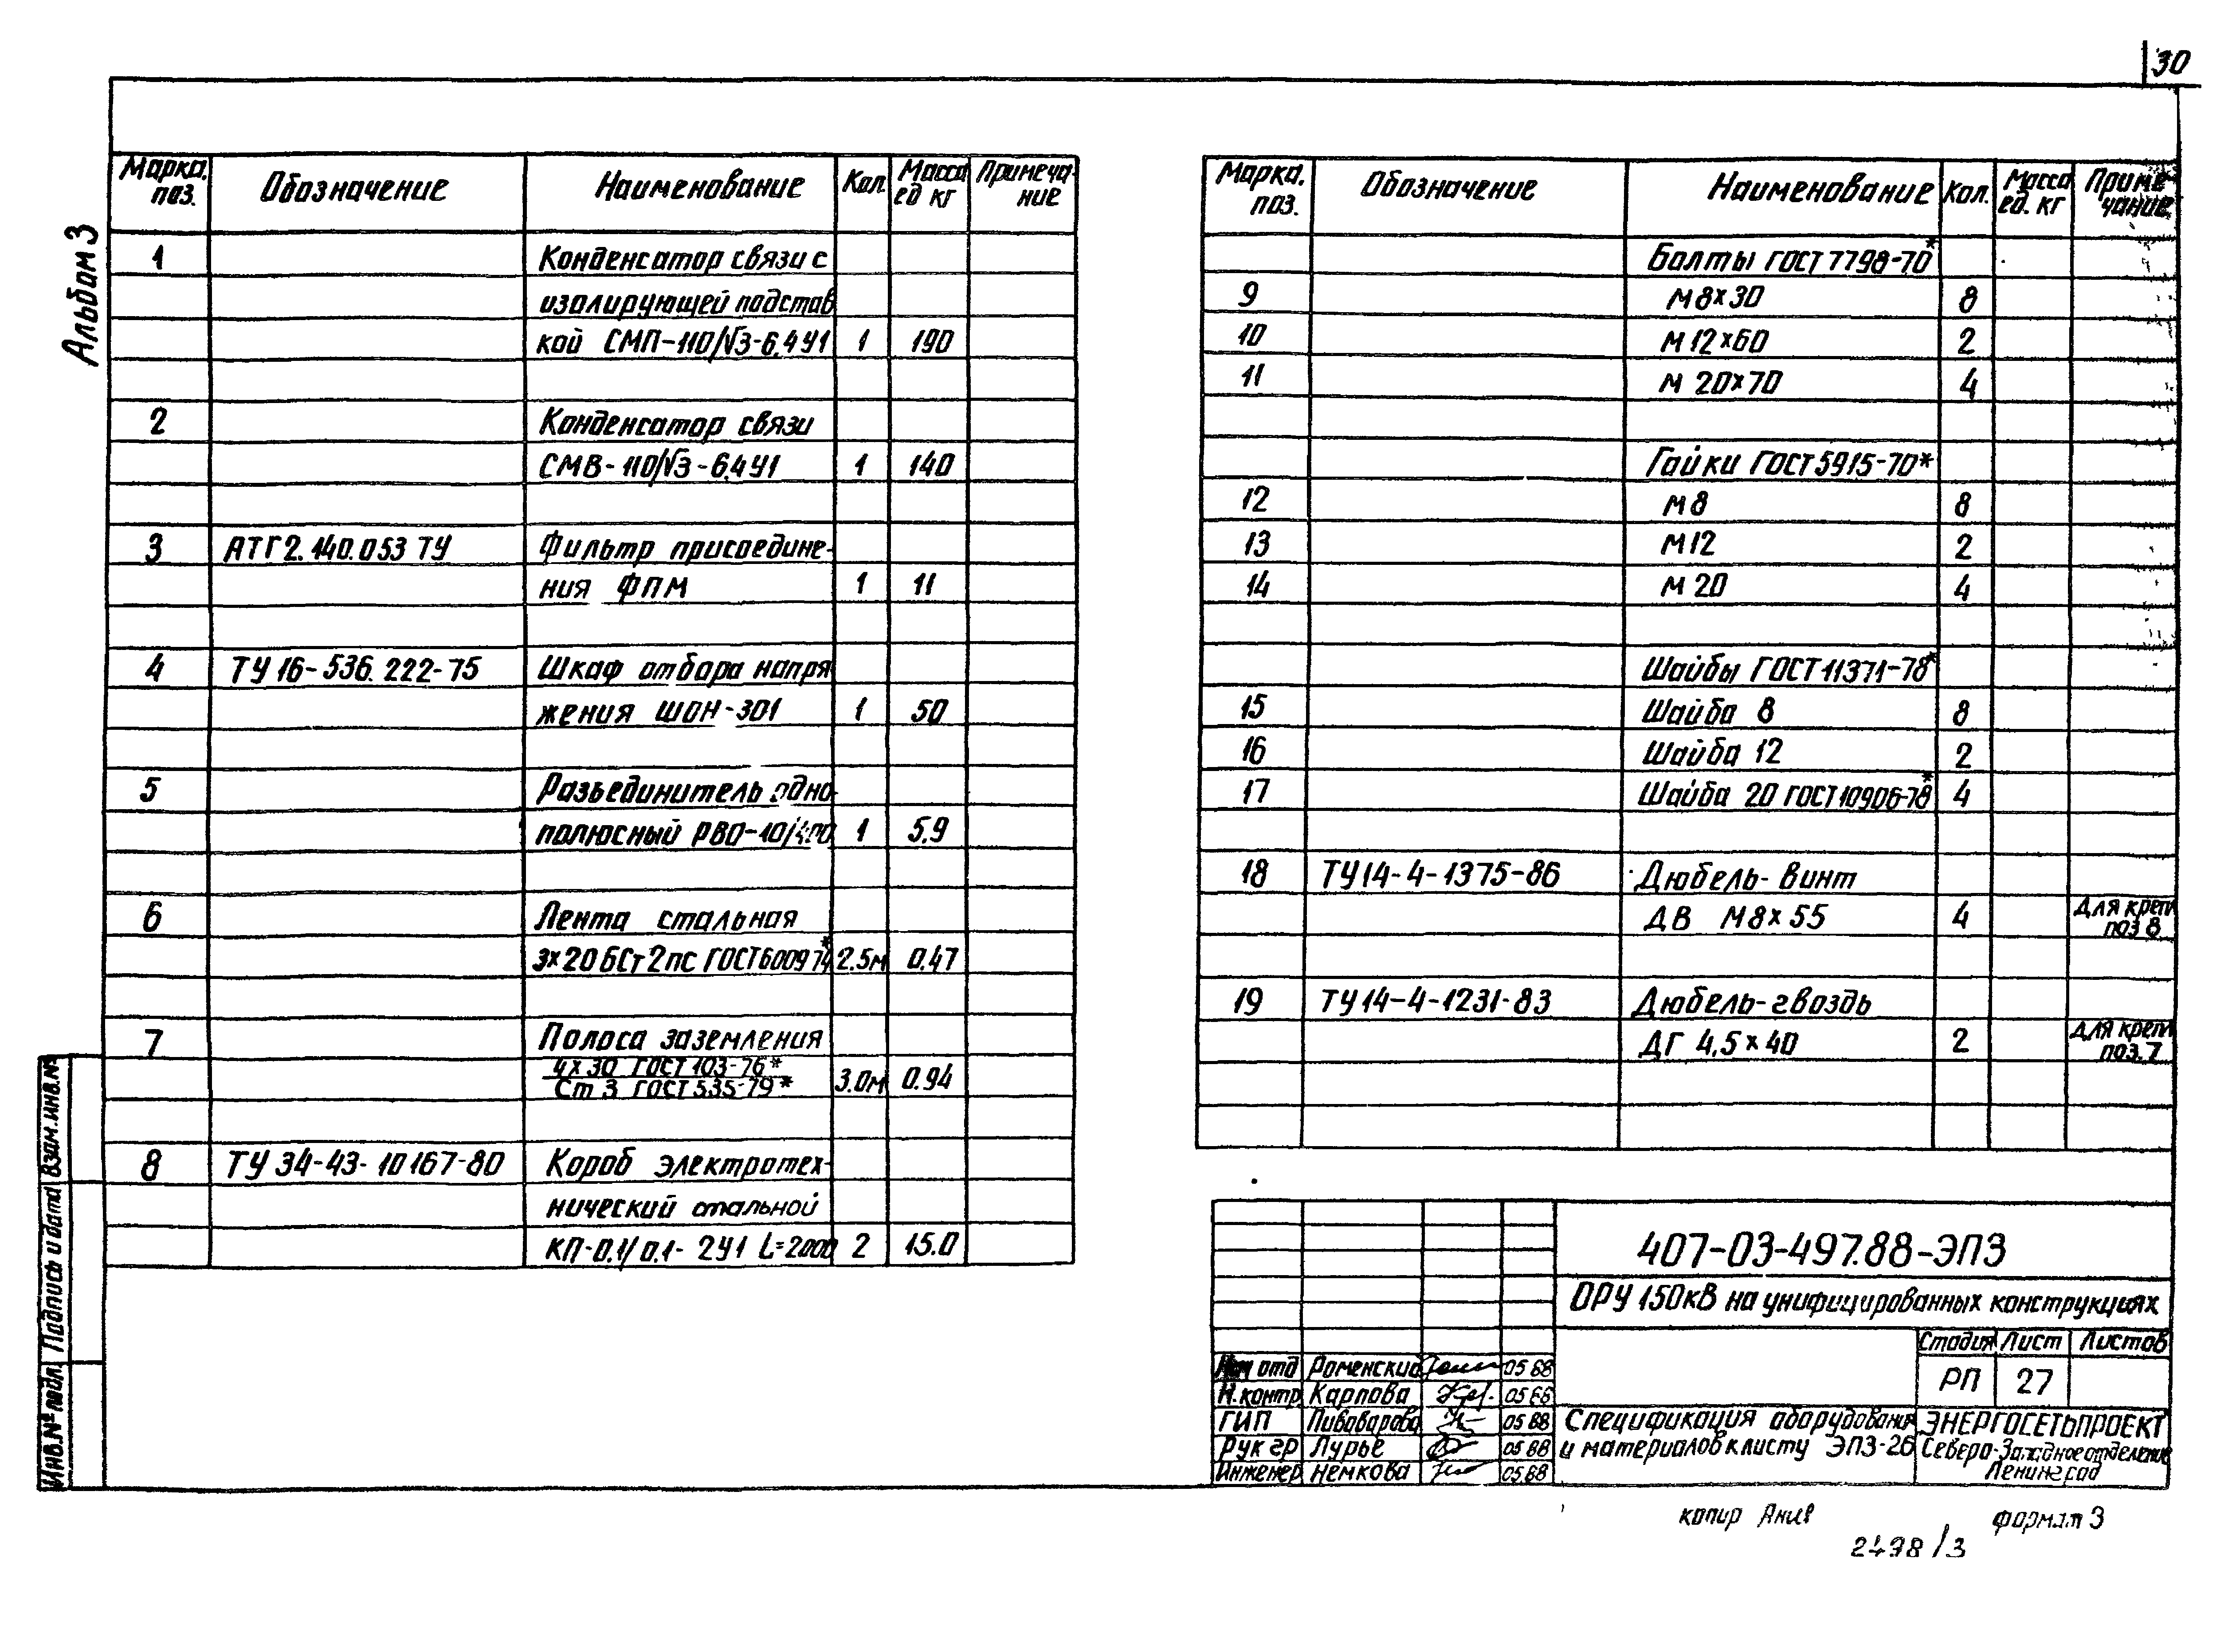 30
Альбом 3
Марка, поз. Обозначение Наименование Кол. Масса ед кг Примеча-ние
1 Конденсатор связи с
изолирующей подстав
кой СМП-110/√3-6,4У1 1 190
2 Конденсатор связи
СМВ-110/√3-6,4У1 1 140
3 АТГ2.140.053 ТУ Фильтр присоедине-
ния ФПМ 1 11
4 ТУ 16-536.222-75 Шкаф отбора напря
жения ШОН-301 1 50
5 Разъединитель одно-
полюсный РВО-10/400 1 5.9
6 Лента стальная
3х20 БСт2пс ГОСТ6009 74* 2.5м 0.47
7 Полоса заземления
4х30 ГОСТ 103-76*
Ст 3 ГОСТ 535-79* 3.0м 0.94
8 ТУ 34-43-10167-80 Короб электротех-
нический стальной
КП-0.1/0.1-2У1 L=2000 2 15.0
Марка, поз. Обозначение Наименование Кол. Масса ед. кг Приме-чание
Болты ГОСТ 7798-70*
9 М8х30 8
10 М12х60 2
11 М20х70 4
Гайки ГОСТ 5915-70*
12 М8 8
13 М12 2
14 М20 4
Шайбы ГОСТ 11371-78*
15 Шайба 8 8
16 Шайба 12 2
17 Шайба 20 ГОСТ10906-78* 4
18 ТУ14-4-1375-86 Дюбель-винт
ДВ М8х55 4 Для креп поз 8
19 ТУ14-4-1231-83 Дюбель-гвоздь
ДГ 4,5х40 2 Для креп поз.7
Инв.№ подл. Подпись и дата Взам.инв.№
407-03-497.88-ЭПЗ
ОРУ 150кВ на унифицированных конструкциях
Стадия Лист Листов
РП 27
Нач отд Роменский 05 88
Н.контр Карпова 05 88
ГИП Пивоварова 05 88
Рук гр Лурье 05 88
Инженер Немкова 05.88
Спецификация оборудования
и материалов к листу ЭПЗ-26
ЭНЕРГОСЕТЬПРОЕКТ
Северо-Западное отделение
Ленинград
копир формат 3
2498/3